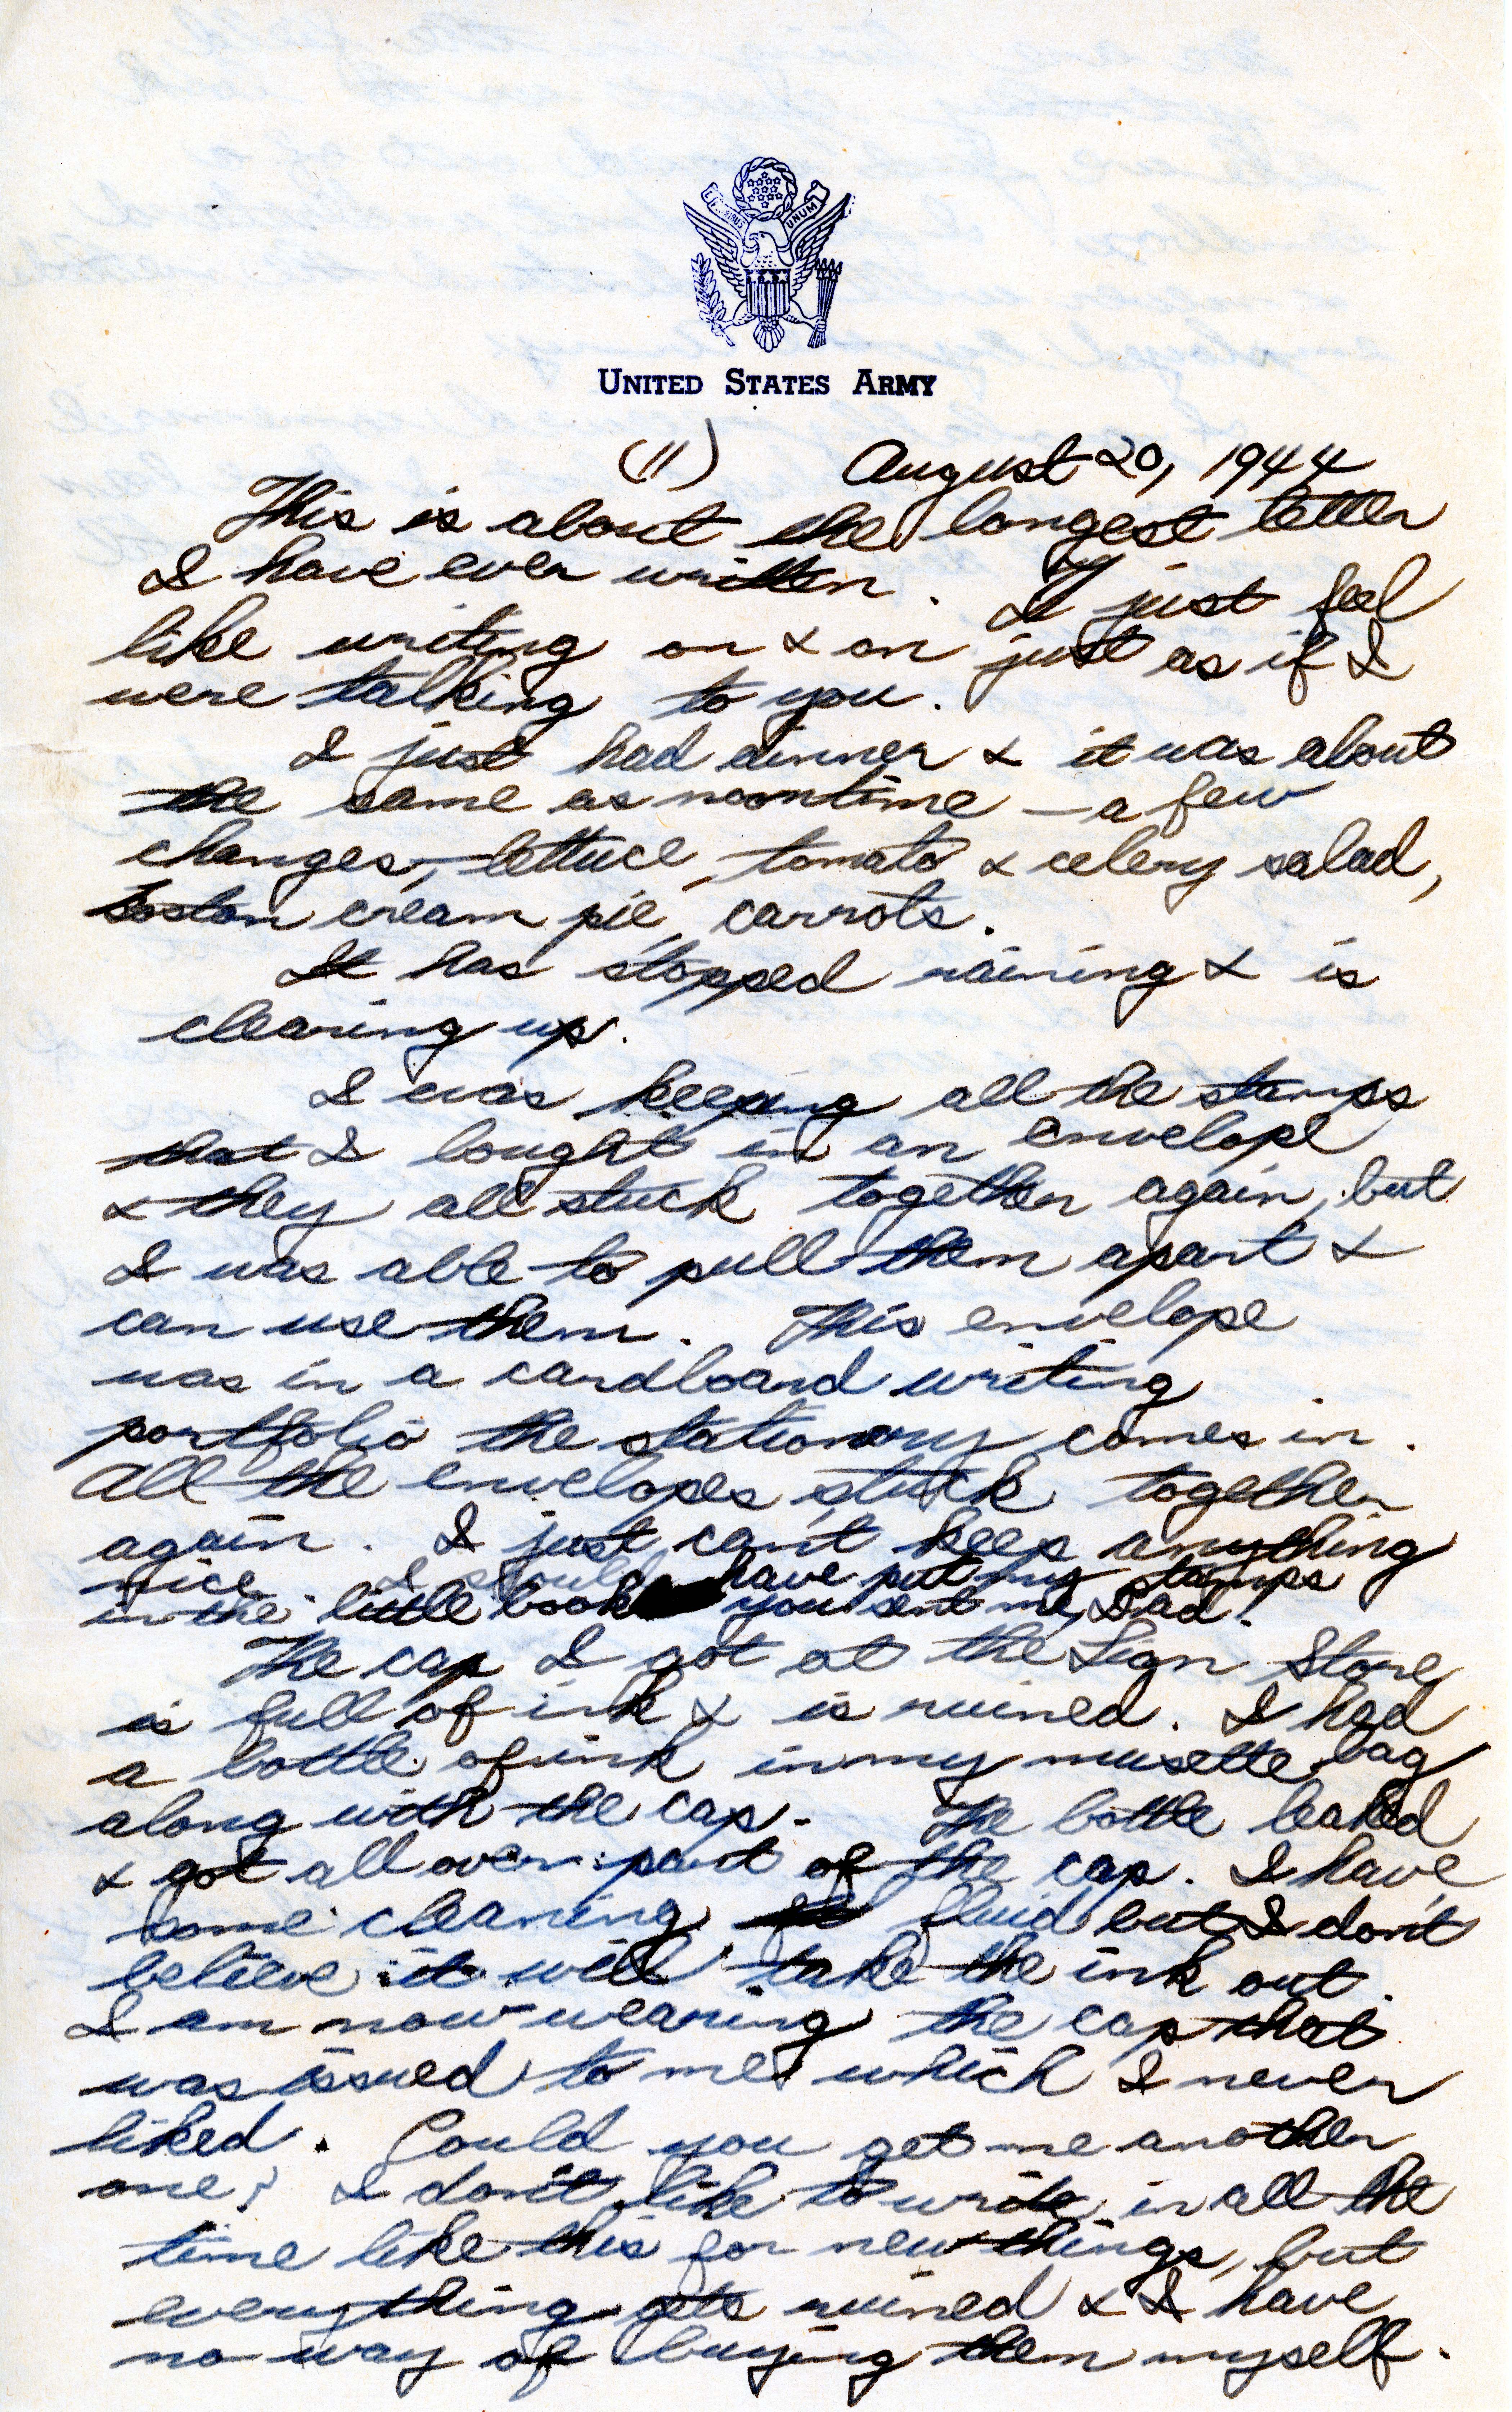 E PLURIBUS UNUM
UNITED STATES ARMY
(11) August 20, 1944
This is about the longest letter
I have ever written. I just feel
like writing on & on just as if I
were talking to you.
I just had dinner & it was about
the same as noontime — a few
changes, lettuce, tomato & celery salad,
boston cream pie, carrots.
It has stopped raining & is
clearing up.
I was keeping all the stamps
that I bought in an envelope
& they all stuck together again, but
I was able to pull them apart &
can use them. This envelope
was in a cardboard writing
portfolio the stationary comes in.
All the envelopes stuck together
again. I just can't keep anything
nice. I should have put my stamps
in the little book you sent me, Dad!
The cap I got at the Sign Store
is full of ink & is ruined. I had
a bottle of ink in my musette bag
along with the cap. The bottle leaked
& got all over part of the cap. I have
some cleaning fluid but I don't
believe it will take the ink out.
I am now wearing the cap that
was issued to me which I never
liked. Could you get me another
one? I don't like to write in all the
time like this for new things, but
everything gets ruined & I have
no way of buying them myself.